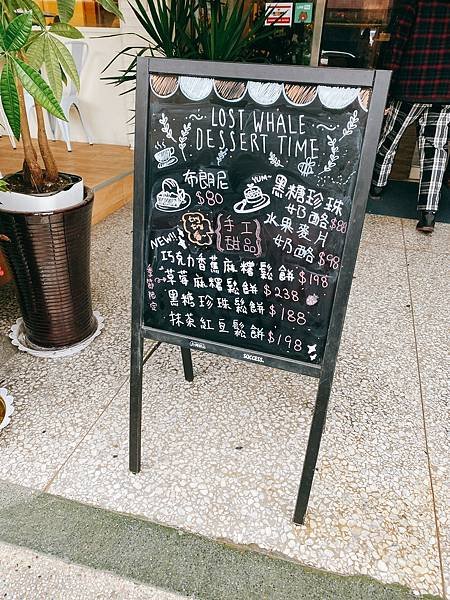 LOST WHALE
DESSERT TIME
布朗尼
$80
YUM~
黑糖珍珠
奶酪$80
水果麥片
奶酪$98
手工
甜品
NEW!!
巧克力香蕉麻糬鬆餅$198
草莓麻糬鬆餅$238
黑糖珍珠鬆餅$188
抹茶紅豆鬆餅$198
季節限定
SUCCESS